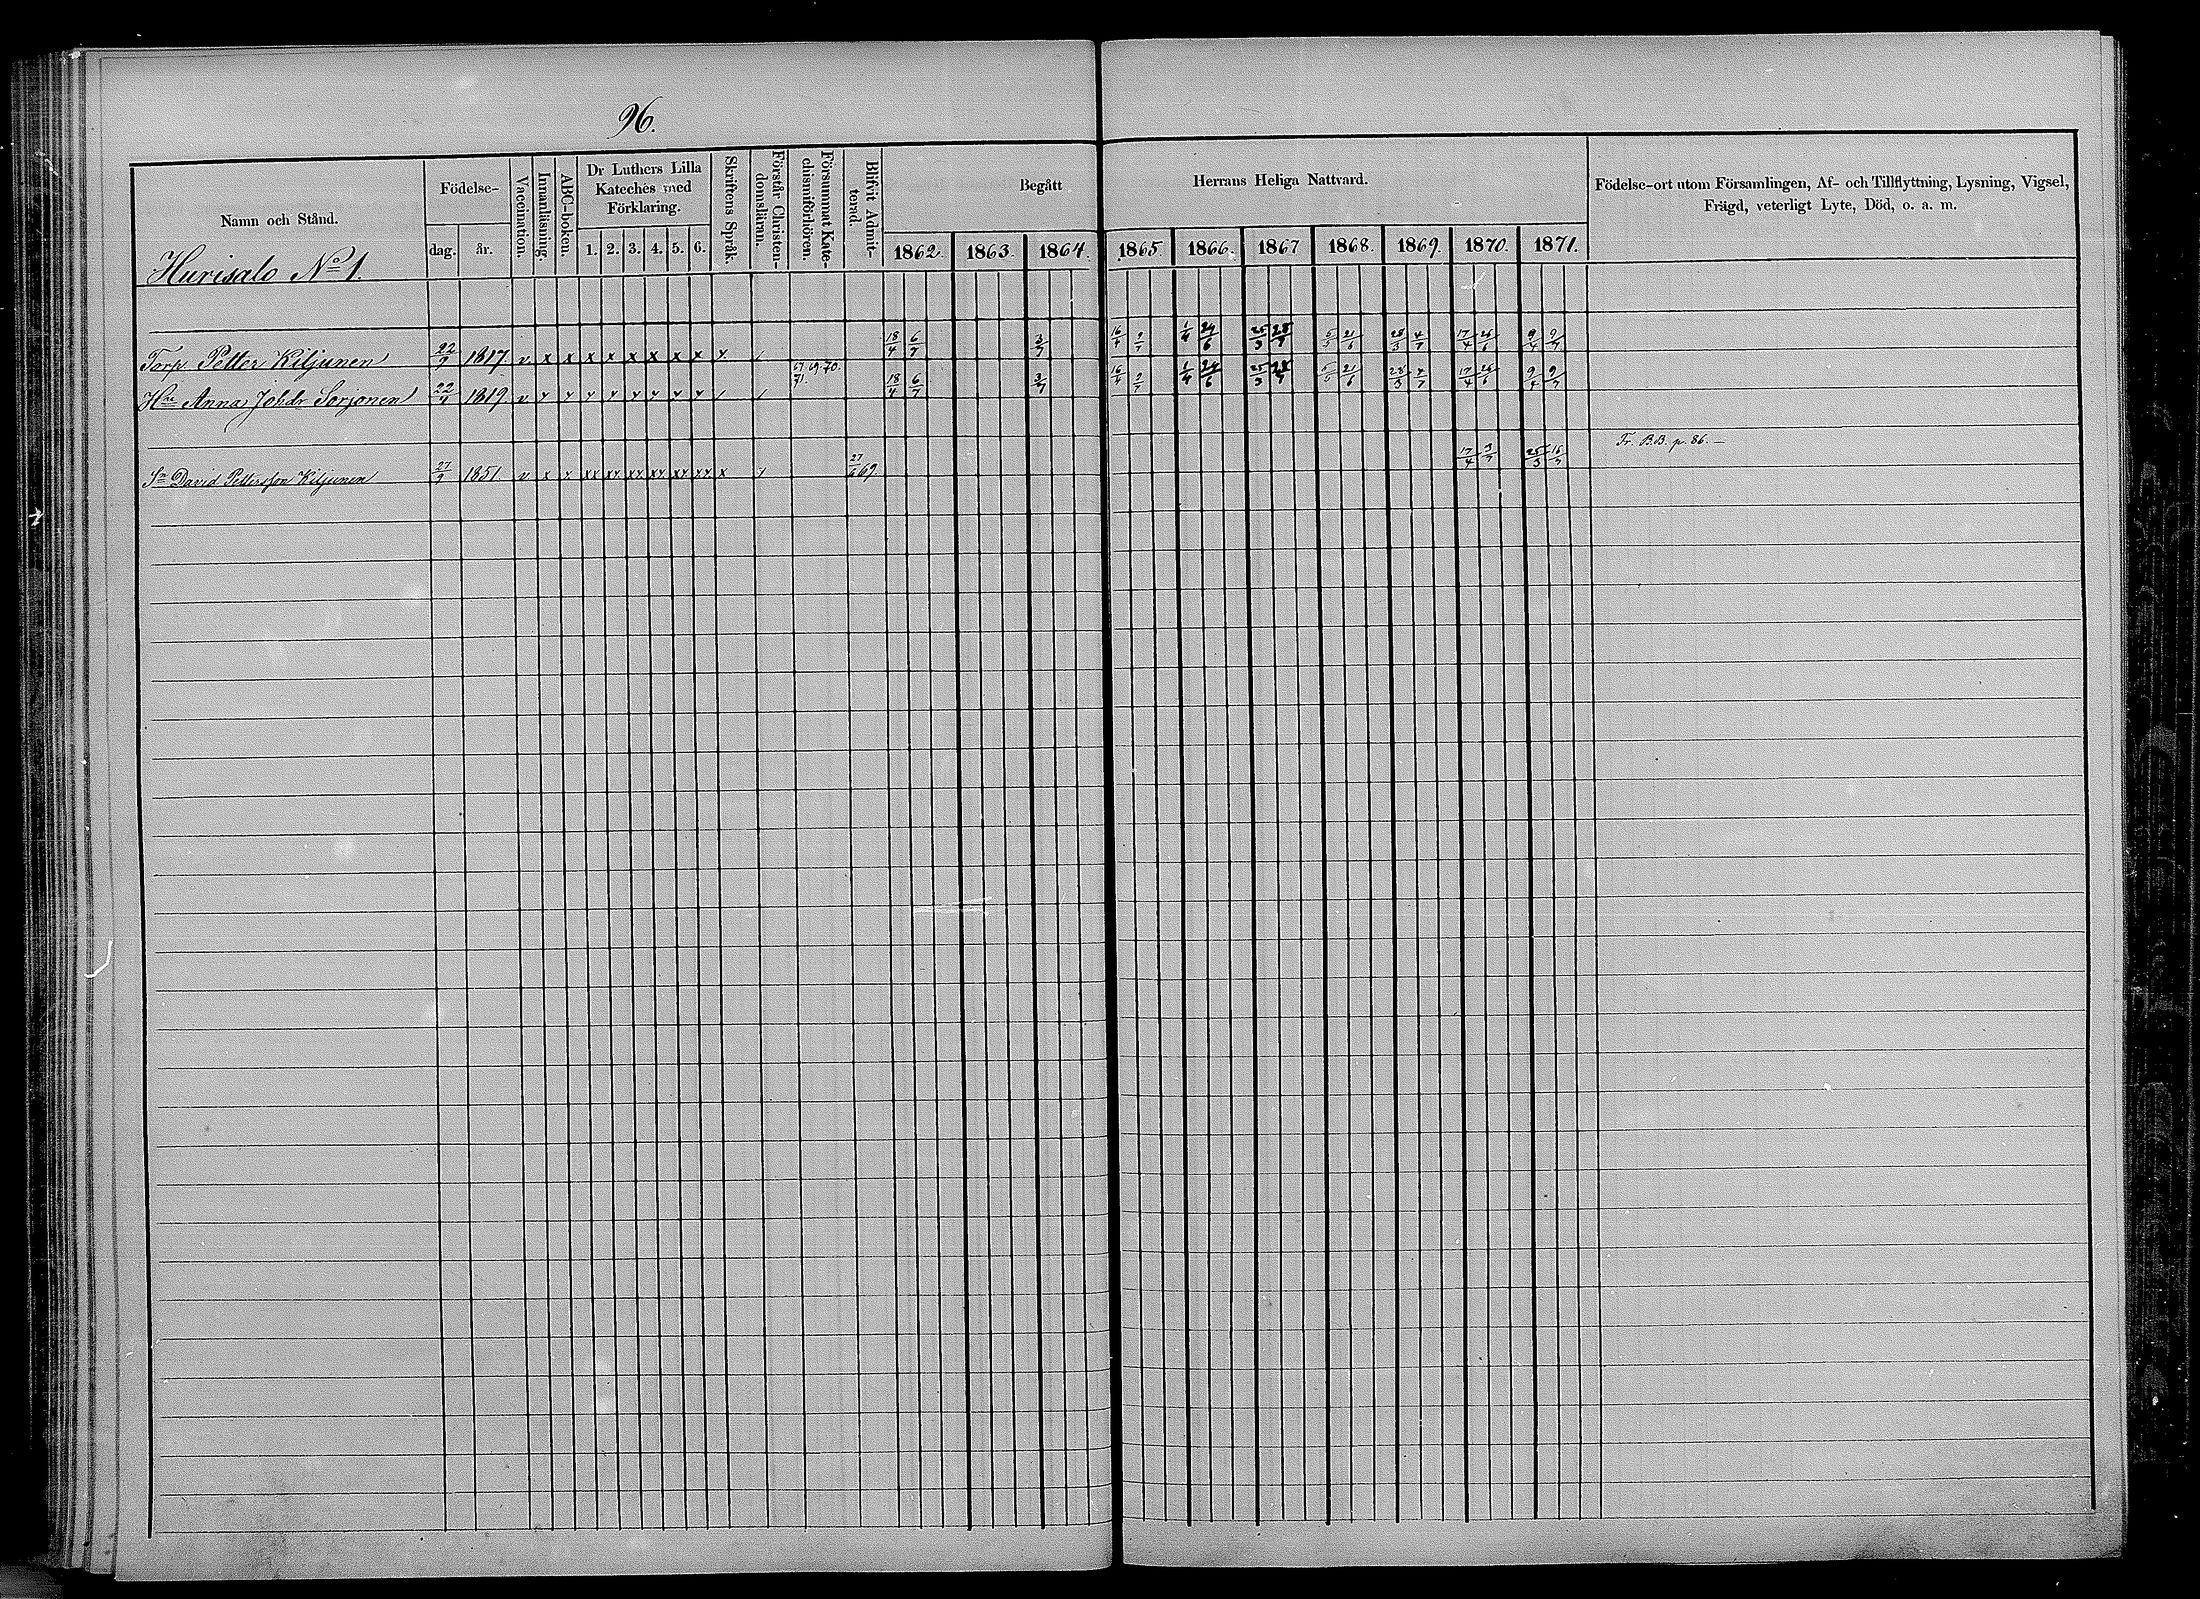 96.
Namn och Stånd. Födelse- dag. år. Vaccination. Innanläsning. ABC-boken. Dr Luthers Lilla Kateches med Förklaring. 1. 2. 3. 4. 5. 6. Skriftens Språk. Förstår Christendomsläran. Försummat Katechismiförhören. Blifvit Admitterad. Begått Herrans Heliga Nattvard. Födelse-ort utom Församlingen, Af- och Tillflyttning, Lysning, Vigsel,
Frägd, veterligt Lyte, Död, o. a. m.
1862. 1863. 1864. 1865. 1866. 1867 1868. 1869. 1870. 1871.
Hurisalo No 1.
Torp. Petter Kiljunen 22/7 1817 v x x x x x x x x x / 18/4 6/7 3/7 16/4 2/7 1/4 24/6 25/3 28/7 5/5 21/6 28/3 4/7 17/4 26/6 9/4 9/7
67. 69. 70.
71.
Hu Anna Johdr Sorjonen 22/4 1819 v x x x x x x x x / / 18/4 6/7 3/7 16/4 2/7 1/4 24/6 25/3 28/7 5/5 21/6 28/3 4/7 17/4 26/6 9/4 9/7
Sn David Pettersson Kiljunen 27/7 1851. v x x xx xx xx xx xx xx x x 27/6 69 17/4 3/7 25/3 16/7 Fr. B.B. p. 86. —